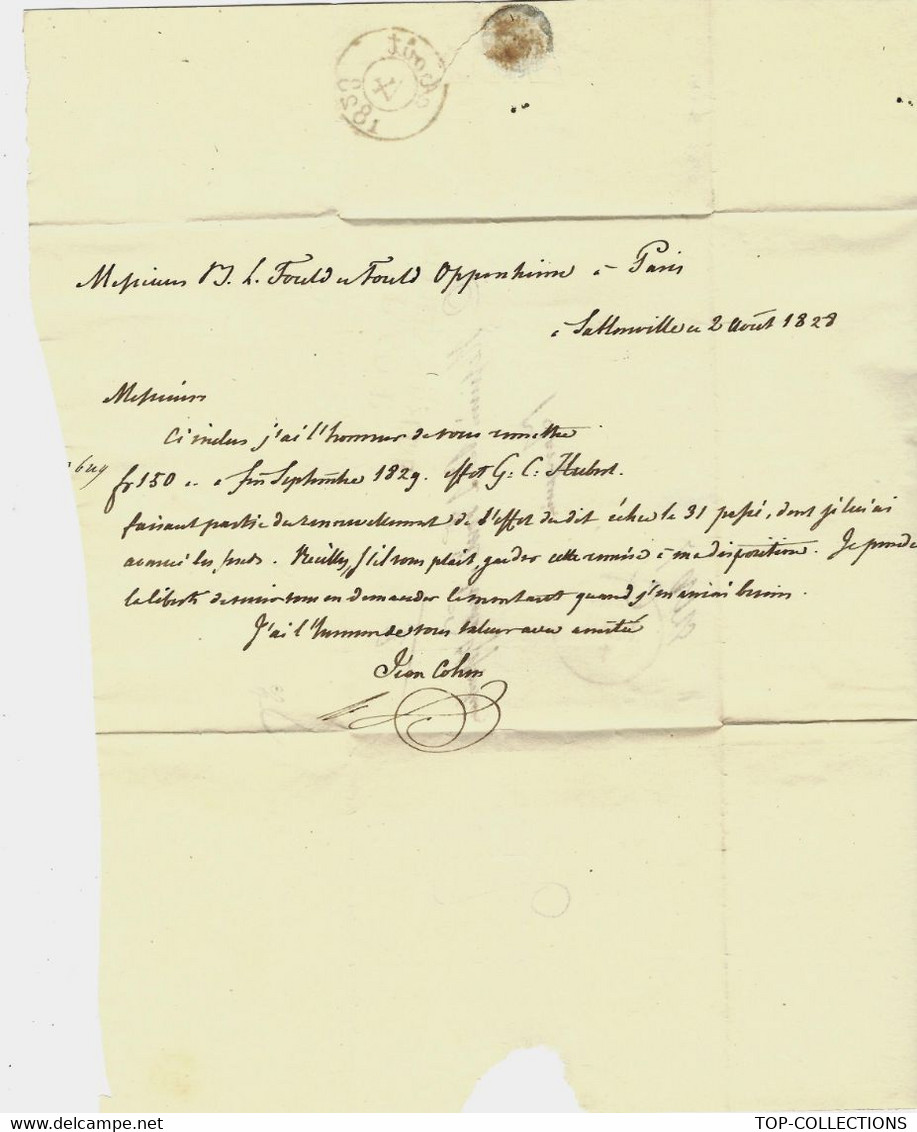 Août
4
1828
Messieurs B. L. Fould et Fould Oppenheim à Paris
à Sablonville ce 2 août 1828
Messieurs
Ci inclus j'ai l'honneur de vous remettre
fr 150 .. à fin Septembre 1829. effet G. C. Hubert.
faisant partie du renouvellement de l'effet du dit échu le 31 passé, dont je lui ai
avancé les fonds. Veuillez, s'il vous plait, garder cette remise à ma disposition. Je prendrai
la liberté de vous en demander le montant quand j'en aurai besoin.
J'ai l'honneur de vous saluer avec amitié
Jean Cohin
TOP-COLLECTIONS